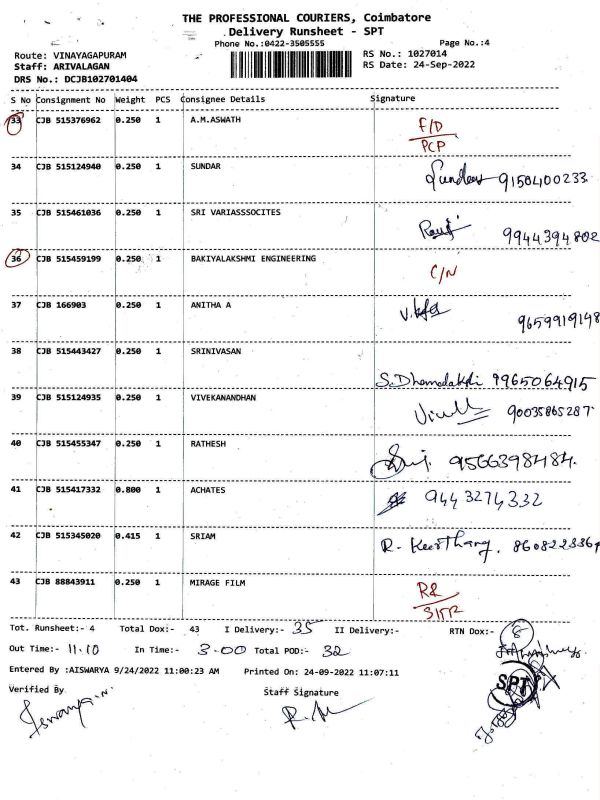 THE PROFESSIONAL COURIERS, Coimbatore
Delivery Runsheet - SPT
Phone No.:0422-3505555 Page No.:4
Route: VINAYAGAPURAM RS No.: 1027014
Staff: ARIVALAGAN RS Date: 24-Sep-2022
DRS No.: DCJB102701404
S No Consignment No Weight PCS Consignee Details Signature
33 CJB 515376962 0.250 1 A.M.ASWATH F/D
PCP
34 CJB 515124940 0.250 1 SUNDAR Sundar 9150400233
35 CJB 515461036 0.250 1 SRI VARIASSSOCITES 9944394802
36 CJB 515459199 0.250 1 BAKIYALAKSHMI ENGINEERING C/N
37 CJB 166903 0.250 1 ANITHA A 9659919148
38 CJB 515443427 0.250 1 SRINIVASAN
S. 9965064915
39 CJB 515124935 0.250 1 VIVEKANANDHAN 90035865287
40 CJB 515455347 0.250 1 RATHESH 9566398484.
41 CJB 515417332 0.800 1 ACHATES 9443274332
42 CJB 515345020 0.415 1 SRIAM R- Keerthang.
43 CJB 88843911 0.250 1 MIRAGE FILM
Tot. Runsheet:- 4 Total Dox:- 43 I Delivery:- 35 II Delivery:- RTN Dox:- 8
Out Time:- 11.10 In Time:- 3.00 Total POD:- 32
Entered By :AISWARYA 9/24/2022 11:00:23 AM Printed On: 24-09-2022 11:07:11
Verified By Staff Signature
SPT